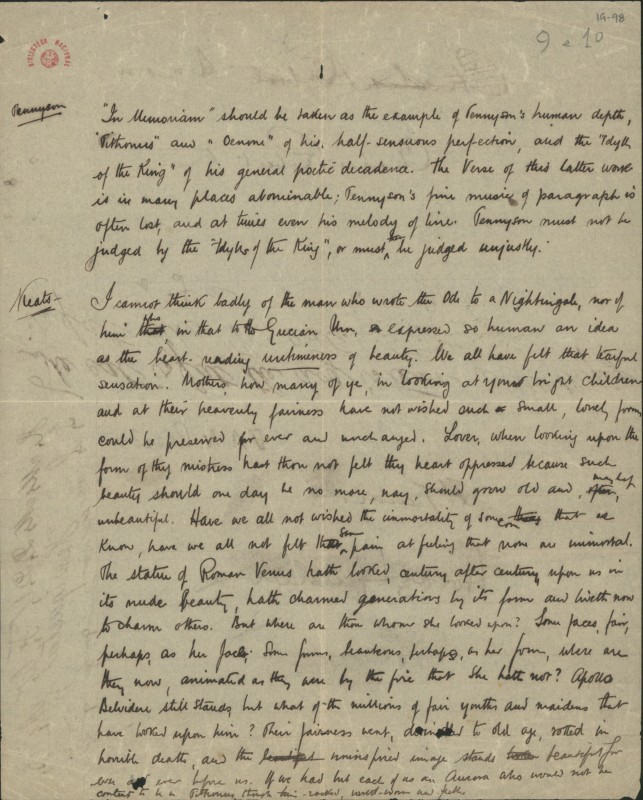 19-98
9 e 10
BIBLIOTECA NACIONAL
1
Tennyson
"In Memoriam" should be taken as the example of Tennyson's human depth,
"Tithonus" and "Oenone" of his half-sensuous perfection, and the "Idylls
of the King" of his general poetic decadence. The Verse of this latter work
is in many places abominable; Tennyson's fine music of paragraph is
often lost, and at times even his melody of line. Tennyson must not be
judged by the "Idylls of the King", or must be judged unjustly.
Keats
I cannot think badly of the man who wrote the Ode to a Nightingale, nor of
him that, in that to the Grecian Urn, expressed so human an idea
as the heart-rending untimeness of beauty. We all have felt that tearful
sensation. Mothers, how many of ye, in looking at your bright children
and at their heavenly fairness have not wished such small, lovely forms
could be preserved for ever and unchanged. Lover, when looking upon the
form of thy mistress hast thou not felt thy heart oppressed because such
beauty should one day be no more, nay, should grow old and, may be,
unbeautiful. Have we all not wished the immortality of someone that we
know, have we all not felt pain at feeling that none are immortal.
The statue of Roman Venus hath looked, century after century upon us in
its nude Beauty, hath charmed generations by its form and liveth now
to charm others. But where are those whom she looked upon? Some faces, fair,
perhaps, as her face, some forms, beauteous, perhaps, as her form, where are
they now, animated as they were by the fire that she hath not? Apollo
Belvidere still stands, but what of the millions of fair youths and maidens that
have looked upon him? Their fairness went, to old age, rotted in
horrible death, and the uninspired image stands beautiful for
ever and ever before us. If we had but each of us an Aurora who would not be
content to be a Tithonus, though - racked, world-worn and